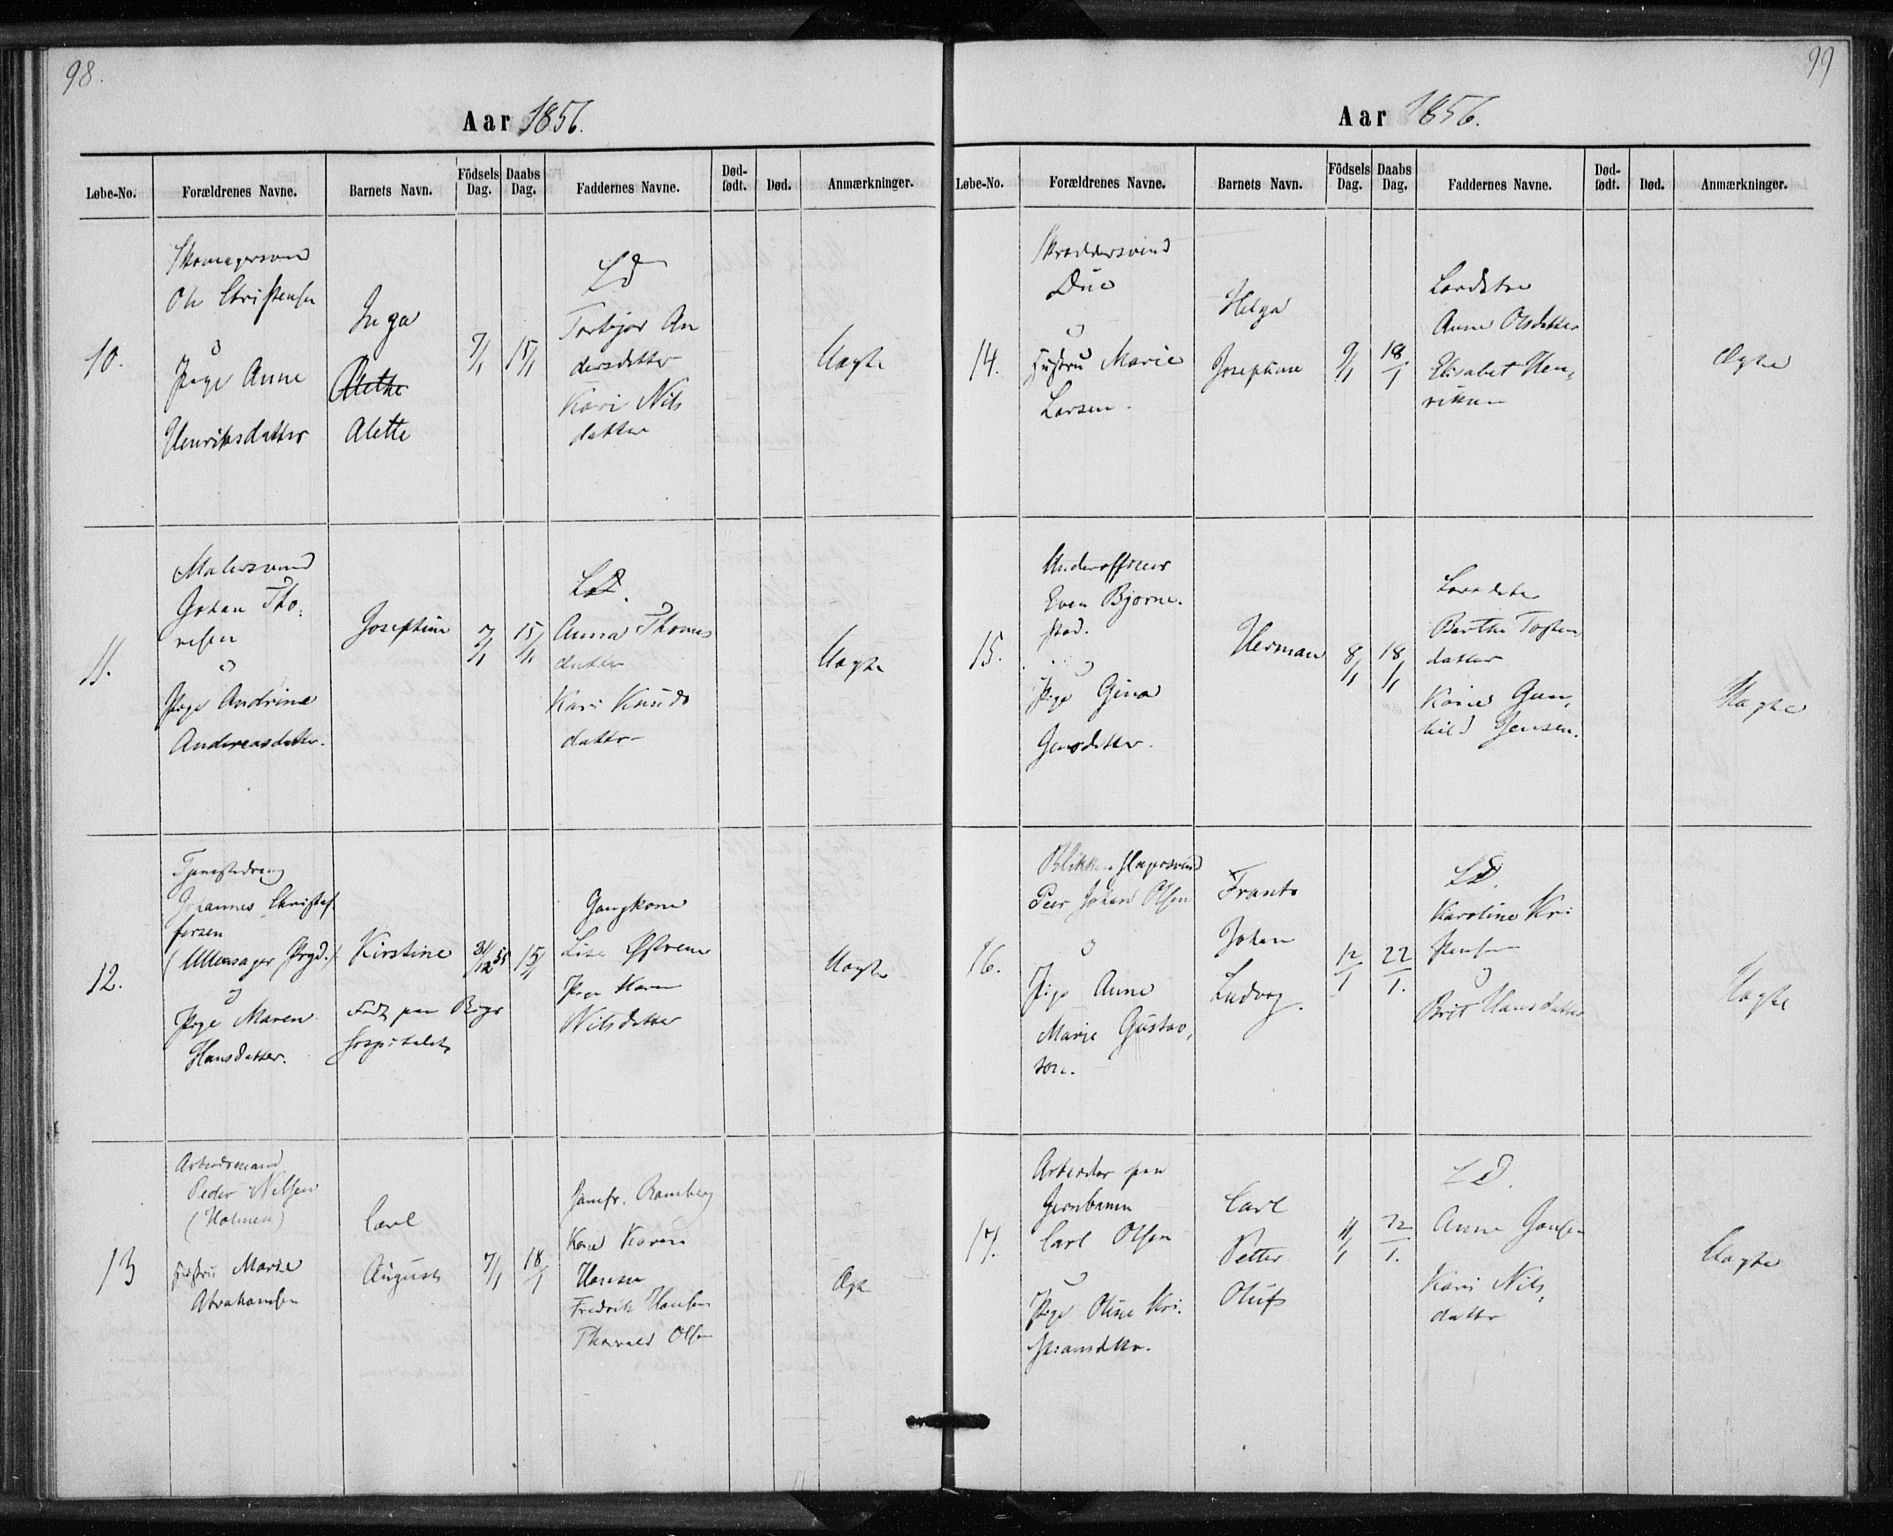 98.
Aar 1856.
Løbe-No. Forældrenes Navne. Barnets Navn. Fødsels Dag. Daabs Dag. Faddernes Navne. Død-født. Død. Anmærkninger.
10.
Skomagersvend
Ole Christensen
o
Pige Anne
Henriksdatter
Inga
Alethe
Alette
7/1
15/1
LD
Torbjør An
dersdatter
Kari Nils
datter
Uægte
11.
Malersvend
Johan Tho:
resen
o
Pige Andrine
Andreasdatter.
Josephine
7/1
15/1
LD.
Anna Thomas
datter
Kari Knuds
datter
Uægte
12.
Tjenestedreng
Johannes Christof
fersen
(Ullensager Prgd.)
o
Pige Maren
Hansdatter.
Kirstine
Født paa Rigs
hospitalet
31/12 55
15/1
Gangkone
Lise Østvem
Pige Karen
Nilsdatter
Uægte
13
Arbeidsmand
Peder Nilsen
(Holmen)
Hustru Marie
Abrahamsen
Carl
August
7/1
18/1
Jomfr. Ramberg
Kone Karen
Hansen
Fredrik Hansen
Thorvald Olsen
Ægte
99
Aar 1856.
Løbe-No. Forældrenes Navne. Barnets Navn. Fødsels Dag. Daabs Dag. Faddernes Navne. Død-født. Død. Anmærkninger.
14.
Skræddersvend
Due
o
Hustru Marie
Larsen.
Helga
Josephine
9/1
18/1
Anne Olsdatter
Elisabet Hen,
riksen
Ægte
15.
Underofficer
Even Bjørne.
stad.
o
Pige Gina
Jensdatter.
Herman
8/1
18/1
Berthe Tosten
datter
Kone Gun,
hild Jensen.
Uægte
16.
Blikkenslagersvend
Peer Johan Olsen
o
Pige Anne
Marie Gustav,
son.
Frants
Johan
Ludvig.
12/1
22/1.
LD.
Karoline Kri
stensen
o
Brit Hansdatter
Uægte
17.
Arbeider paa
Jernbanen
Carl Olsen
o
Pige Oline Kri.
stiansdtter.
Carl
Petter
Oluf
22/1.
LD.
Anne Jonsen
Kari Nils,
datter
Uægte